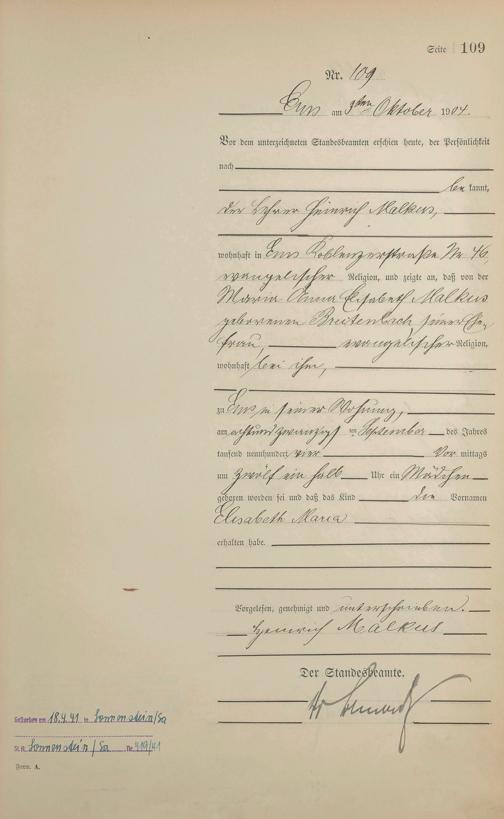 Seite 109
Nr. 109
Ems am 3ten Oktober 1904.
Vor dem unterzeichneten Standesbeamten erschien heute, der Persönlichkeit
nach
be kannt,
der Lehrer Heinrich Malkus,
wohnhaft in Ems Koblenzerstraße Nr 46,
evangelischer Religion, und zeigte an, daß von der
Maria Anna Elisabeth Malkus
geborenen Breitenbach seiner Ehe-
frau, evangelischer Religion,
wohnhaft bei ihm,
zu Ems in seiner Wohnung,
am achtundzwanzigsten September des Jahres
tausend neunhundert vier Vor mittags
um zwölf ein halb Uhr ein Mädchen
geboren worden sei und daß das Kind die Vornamen
Elisabeth Maria
erhalten habe.
Vorgelesen, genehmigt und unterschrieben.
Heinrich Malkus
Der Standesbeamte.
Gestorben am 18.4.41 in Sonnenstein/Sa
St. A. Sonnenstein/Sa Nr. 419/41
Form. A.